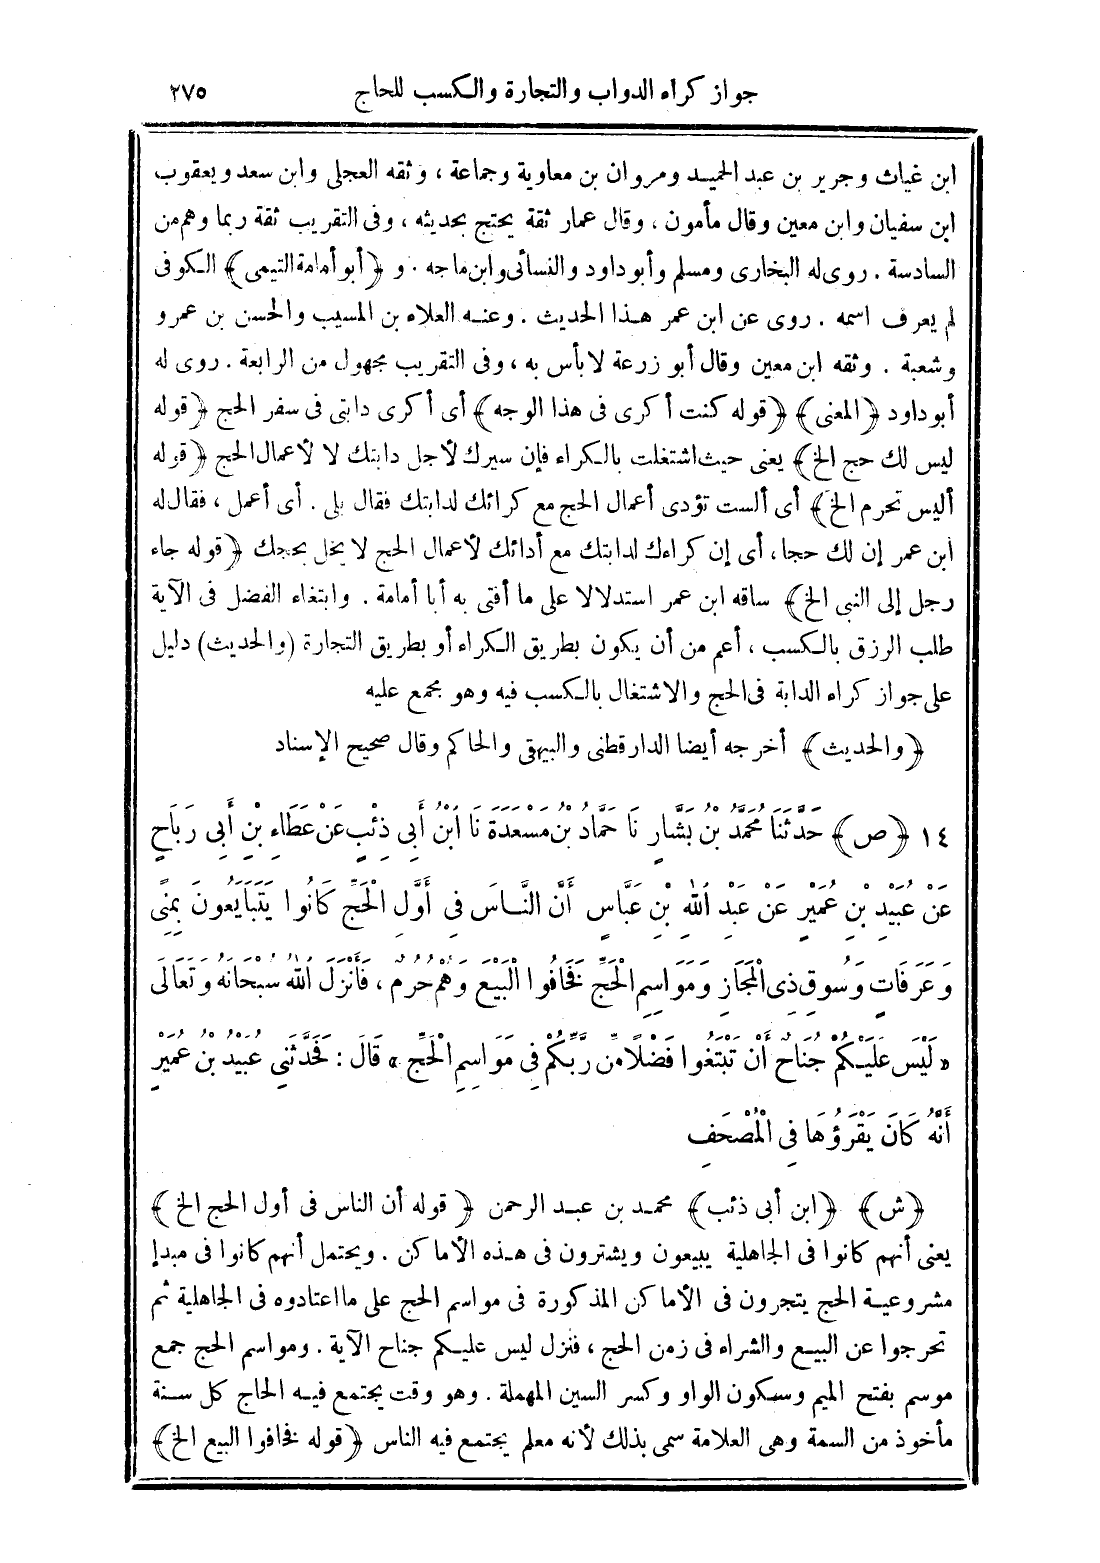 جواز كراء الدواب والتجارة والكسب للحاج ٢٧٥
ابن غياث وجرير بن عبد الحميد ومروان بن معاوية وجماعة ، وثقه العجلى وابن سعد ويعقوب
ابن سفيان وابن معين وقال مأمون ، وقال عمار ثقة يحتج بحديثه ، وفى التقريب ثقة ربما وهم من
السادسة . روى له البخارى ومسلم وأبو داود والنسائى وابن ماجه . و ﴿أبو أمامة التيمى﴾ الكوفى
لم يعرف اسمه . روى عن ابن عمر هذا الحديث . وعنه العلاء بن المسيب والحسن بن عمرو
وشعبة . وثقه ابن معين وقال أبو زرعة لا بأس به ، وفى التقريب مجهول من الرابعة . روى له
أبو داود ﴿المعنى﴾ ﴿قوله كنت أكرى فى هذا الوجه﴾ أى أكرى دابتى فى سفر الحج ﴿قوله
ليس لك حج الخ﴾ يعنى حيث اشتغلت بالكراء فإن سيرك لأجل دابتك لا لأعمال الحج ﴿قوله
أليس تحرم الخ﴾ أى ألست تؤدى أعمال الحج مع كرائك لدابتك فقال بلى . أى أعمل ، فقال له
ابن عمر إن لك حجا ، أى إن كراءك لدابتك مع أدائك لأعمال الحج لا يخل بحجك ﴿قوله جاء
رجل إلى النبى الخ﴾ ساقه ابن عمر استدلالا على ما أفتى به أبا أمامة . وابتغاء الفضل فى الآية
طلب الرزق بالكسب ، أعم من أن يكون بطريق الكراء أو بطريق التجارة (والحديث) دليل
على جواز كراء الدابة فى الحج والاشتغال بالكسب فيه وهو مجمع عليه
﴿والحديث﴾ أخرجه أيضا الدارقطنى والبيهقى والحاكم وقال صحيح الإسناد
١٤ ﴿ص﴾ حَدَّثَنَا مُحَمَّدُ بْنُ بَشَّارٍ نَا حَمَّادُ بْنُ مَسْعَدَةَ نَا ابْنُ أَبِى ذِئْبٍ عَنْ عَطَاءِ بْنِ أَبِى رَبَاحٍ
عَنْ عُبَيْدِ بْنِ عُمَيْرٍ عَنْ عَبْدِ اللّٰهِ بْنِ عَبَّاسٍ أَنَّ النَّاسَ فِى أَوَّلِ الْحَجِّ كَانُوا يَتَبَايَعُونَ بِمِنًى
وَعَرَفَاتٍ وَسُوقِ ذِى الْمَجَازِ وَمَوَاسِمِ الْحَجِّ فَخَافُوا الْبَيْعَ وَهُمْ حُرُمٌ ، فَأَنْزَلَ اللّٰهُ سُبْحَانَهُ وَتَعَالَى
« لَيْسَ عَلَيْكُمْ جُنَاحٌ أَنْ تَبْتَغُوا فَضْلًا مِنْ رَبِّكُمْ فِى مَوَاسِمِ الْحَجِّ » قَالَ : فَحَدَّثَنِى عُبَيْدُ بْنُ عُمَيْرٍ
أَنَّهُ كَانَ يَقْرَؤُهَا فِى الْمُصْحَفِ
﴿ش﴾ ﴿ابن أبى ذئب﴾ محمد بن عبد الرحمن ﴿قوله أن الناس فى أول الحج الخ﴾
يعنى أنهم كانوا فى الجاهلية يبيعون ويشترون فى هذه الأماكن . ويحتمل أنهم كانوا فى مبدإ
مشروعية الحج يتجرون فى الأماكن المذكورة فى مواسم الحج على ما اعتادوه فى الجاهلية ثم
تحرجوا عن البيع والشراء فى زمن الحج ، فنزل ليس عليكم جناح الآية . ومواسم الحج جمع
موسم بفتح الميم وسكون الواو وكسر السين المهملة . وهو وقت يجتمع فيه الحاج كل سنة
مأخوذ من السمة وهى العلامة سمى بذلك لأنه معلم يجتمع فيه الناس ﴿قوله فخافوا البيع الخ﴾